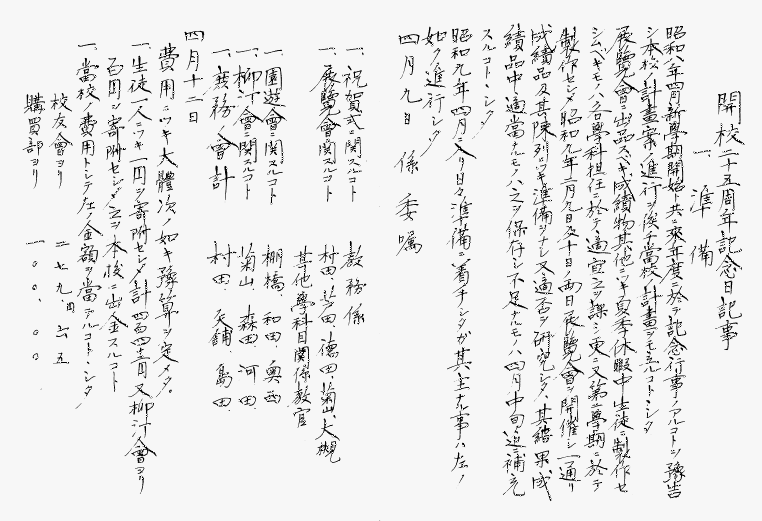 開校二十五周年記念日記事
一、準備
昭和八年四月新學期開始ト共ニ來年度ニ於テ記念行事ノアルコトヲ豫告
シ本校ノ計畫案ノ進行ヲ俟チ當校ノ計畫ヲモ立ルコトヽシタ
展覽會ニ出品スベキ成績物其他ニツキ夏季休暇中生徒ニ製作セ
シムベキモノハ各學科担任ニ於テ適宜之ヲ課シ更ニ又第二學期ニ於テ
製作セシメ昭和九年二月九日及十日ノ兩日展覽會ヲ開催シ一通リ
成績品及其陳列ニツキ準備ヲナシ又適否ヲ研究シタ、其結果成
績品中ニ適當ナルモノハ之ヲ保存シ不足ナルモノハ四月中旬迄ニ補充
スルコトヽシタ
昭和九年四月ニ入リ日々準備ニ着手シタガ其ノ主ナル事ハ左ノ
如ク進行シタ
四月九日 係委嘱
一、祝賀式ニ関スルコト 教務係
一、展覽會ニ関スルコト 村田、芝田、德田、菊山、大槻
其他學科目関係教官
一、園遊會ニ関スルコト 棚橋、和田、奥西
一、柳汀會ニ関スルコト 菊山、森田、河田、
一、庶務、會計 村田、矢舗、島田、
四月十二日
費用ニツキ大體次ノ如キ豫算ヲ定メタ。
一、生徒一人ニツキ一円ヲ寄附セシメ計四百四十四円又柳汀會ヨリ
百円ヲ寄附セシメ之ヲ本校ニ出金スルコト
一、當校ノ費用トシテ左ノ金額ヲ當テルコトヽシタ
校友會ヨリ 二七九円六五
購買部ヨリ 一〇〇.〇〇